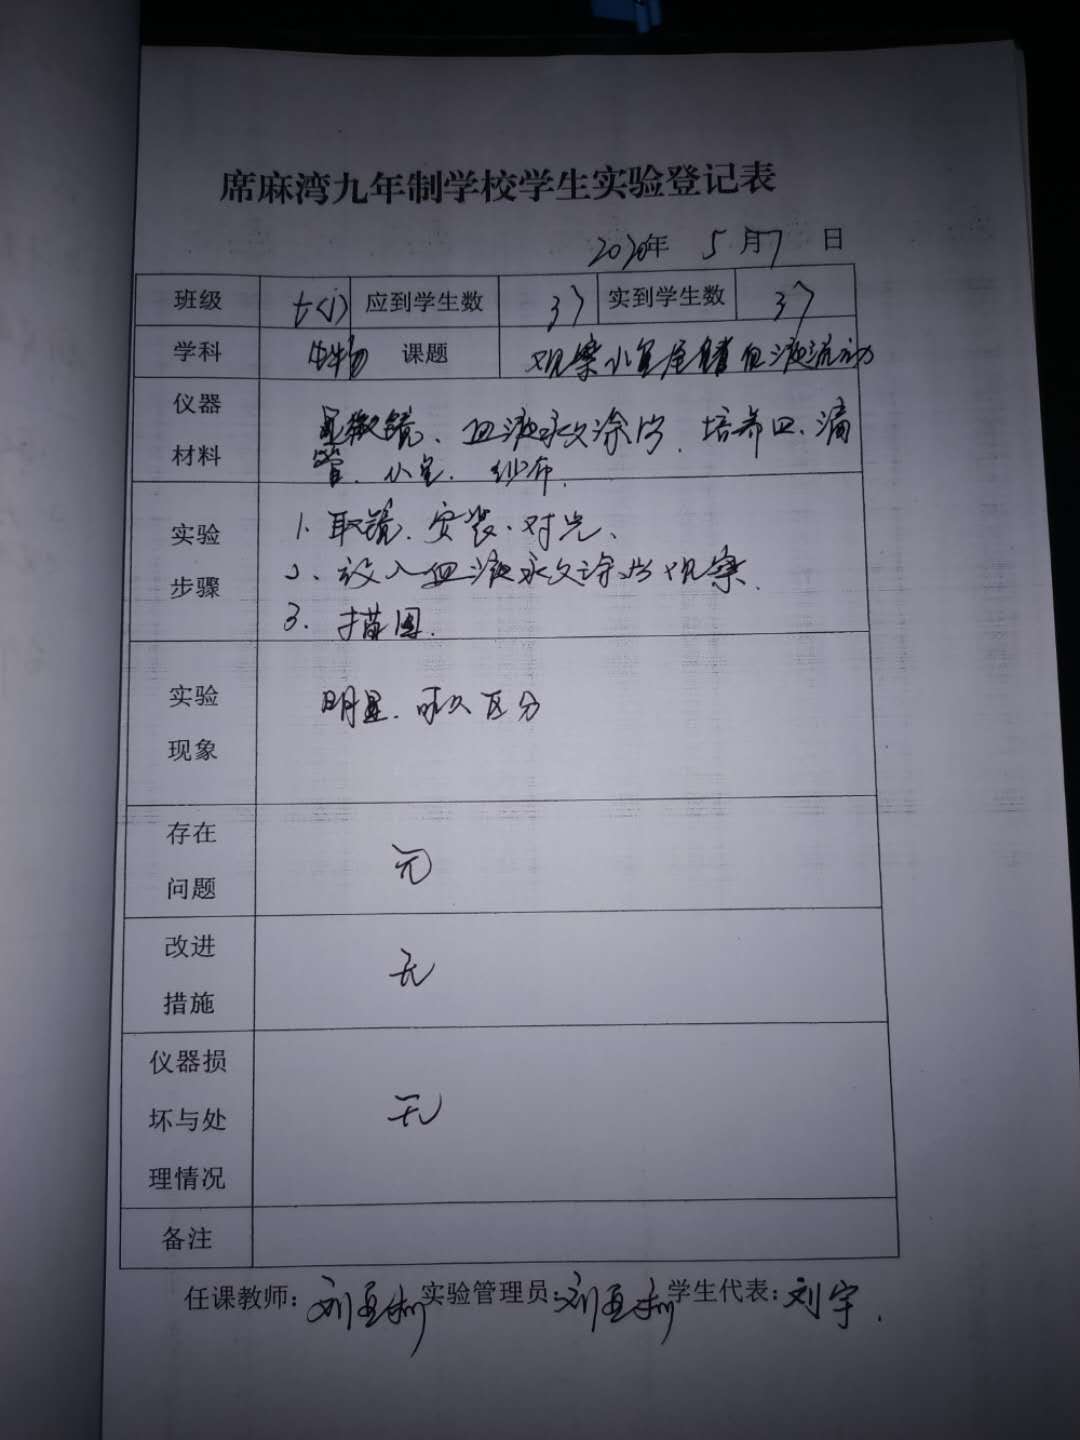 席麻湾九年制学校学生实验登记表
2020年 5月7日
班级 七(1) 应到学生数 37 实到学生数 37
学科 生物 课题 观察小鱼尾鳍血液流动
仪器材料
显微镜、血液永久涂片、培养皿、滴
管、小鱼、纱布.
实验步骤
1. 取镜、安装、对光、
2. 放入血液永久涂片观察.
3. 描图.
实验现象
明显、可区分
存在问题
无
改进措施
无
仪器损坏与处理情况
无
备注
任课教师: 刘 实验管理员: 刘 学生代表: 刘宇.